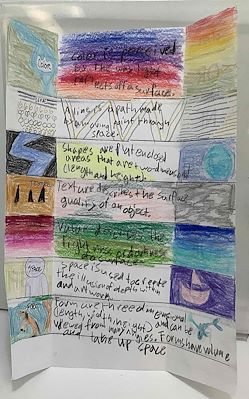 Color
Color is perceived
by the way light
reflects off a surface.
A line is a path made
by a moving point through
space
Shapes are flat enclosed
areas that are two dimensional
(length and height)
Texture describes the surface
quality of an object.
Value describes the
lightness or darkness
of a surface
Space
Space is used to create
the illusion of depth within
an artwork
Form are three dimensional
(length, width, height) and can be
viewed from many angles. Forms have volume
and take up space